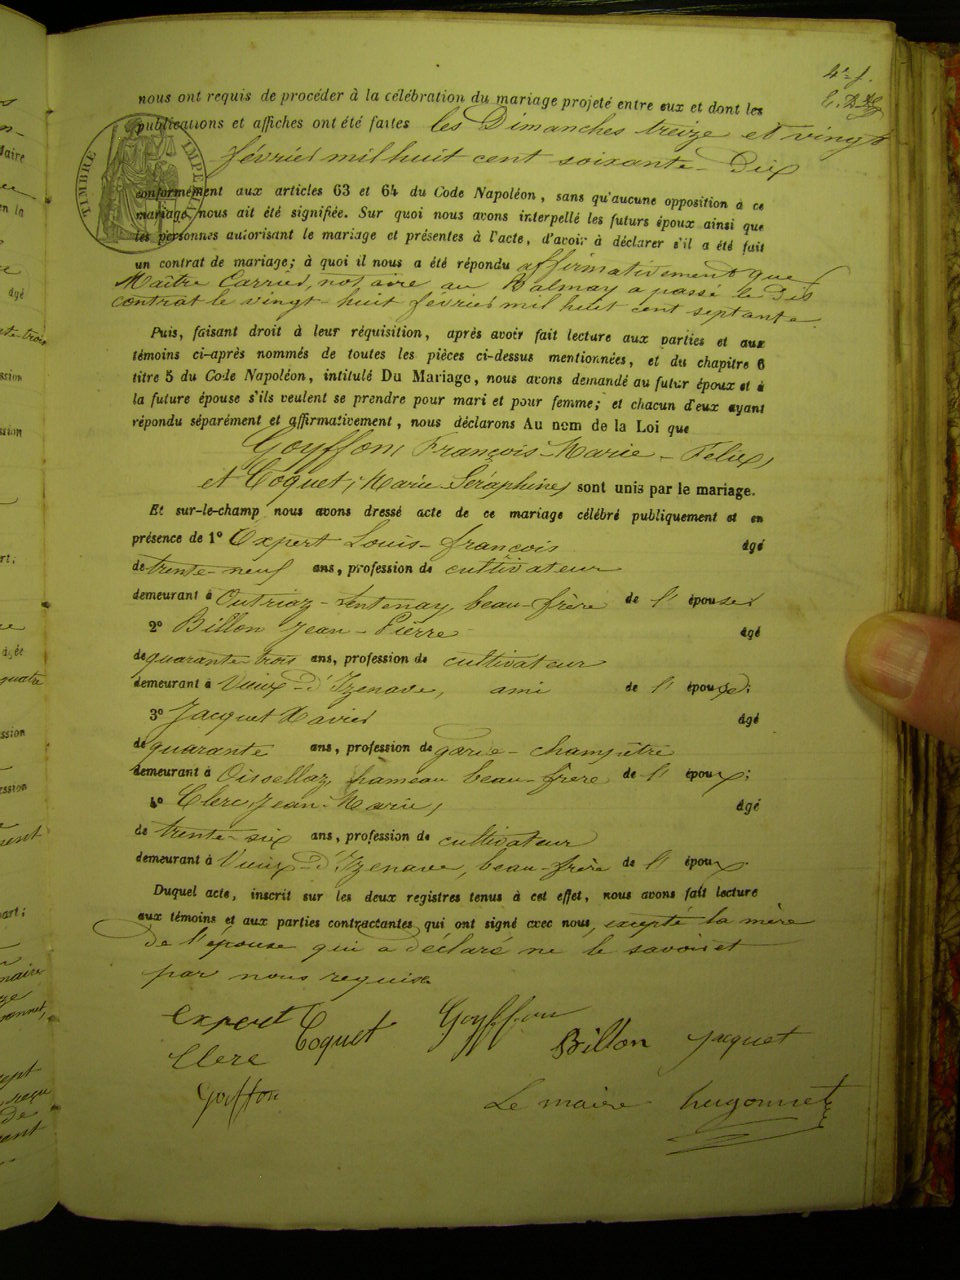 4e f.
nous ont requis de procéder à la célébration du mariage projeté entre eux et dont les
publications et affiches ont été faites les Dimanches treize et vingt
février mil huit cent soixante-Dix
TIMBRE IMPERIAL
conformément aux articles 63 et 64 du Code Napoléon, sans qu'aucune opposition à ce
mariage nous ait été signifiée. Sur quoi nous avons interpellé les futurs époux ainsi que
les personnes autorisant le mariage et présentes à l'acte, d'avoir à déclarer s'il a été fait
un contrat de mariage; à quoi il nous a été répondu affirmativement que
Maître Carrier, notaire au Balmay a passé le Dis
contrat le vingt-huit février mil huit cent septante.
Puis, faisant droit à leur réquisition, après avoir fait lecture aux parties et aux
témoins ci-après nommés de toutes les pièces ci-dessus mentionnées, et du chapitre 6
titre 5 du Code Napoléon, intitulé Du Mariage, nous avons demandé au futur époux et à
la future épouse s'ils veulent se prendre pour mari et pour femme; et chacun d'eux ayant
répondu séparément et affirmativement, nous déclarons Au nom de la Loi que
Goyffon, François-Marie-Felix,
et Coquet, Marie Séraphine, sont unis par le mariage.
Et sur-le-champ nous avons dressé acte de ce mariage célébré publiquement et en
présence de 1° Expert Louis-françois âgé
de trente-neuf ans, profession de cultivateur
demeurant à Outriaz-Lentenay, beau-frère de l'épouse;
2° Billon Jean-Pierre âgé
de quarante-trois ans, profession de cultivateur
demeurant à Vieux-d'Izenave, ami de l'époux;
3° Jacquet Xavier âgé
de quarante ans, profession de garde-champêtre
demeurant à Oisellaz, hameau beau-frère de l'époux;
4° Clerc, Jean-Marie, âgé
de trente-six ans, profession de cultivateur
demeurant à Vieux-d'Izenave, beau-frère de l'époux.
Duquel acte, inscrit sur les deux registres tenus à cet effet, nous avons fait lecture
aux témoins et aux parties contractantes, qui ont signé avec nous, excepté la mère
De l'épouse qui a déclaré ne le savoir et
par nous requise.
Expert Coquet Goyffon Billon Jacquet
Clerc
Goiffon Le maire hugonnet